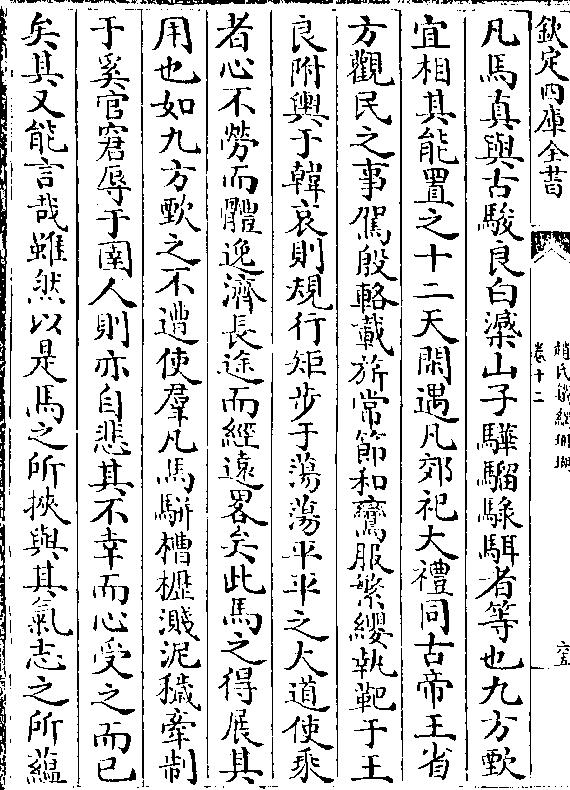 欽定四庫全書
趙氏鐵網珊瑚
卷十二
六五
凡馬真與古駿良白𣾰山子驊騮騄駬者等也九方甄
宜相其能置之十二天閑遇凡郊祀大禮同古帝王省
方觀民之事駕殷輅載旂常節和鸞服繁纓執靶于王
良附輿于韓哀則規行矩步于蕩蕩平平之大道使乘
者心不勞而體逸濟長途而經遠畧矣此馬之得展其
用也如九方甄之不遭使羣凡馬駢槽櫪濺泥穢牽制
于奚官窘辱于圉人則亦自悲其不幸而心受之而已
矣其又能言哉雖然以是馬之所挾與其氣志之所蘊